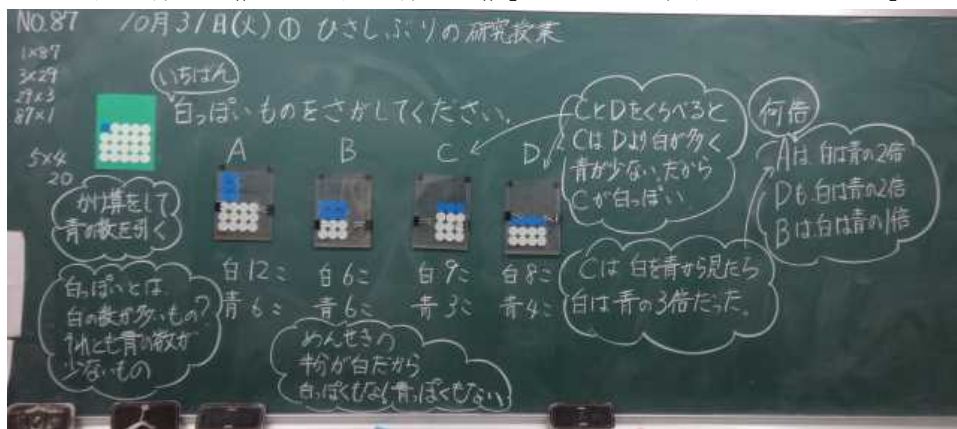 NO.87 10月31日(火)① ひさしぶりの研究授業
1×87
3×29
29×3
87×1
5×4
20
いちばん
白っぽいものをさがしてください。
かけ算をして
青の数を引く
白っぽいとは
白の数が多いもの?
それとも青の数が
少ないもの
A
白12こ
青6こ
B
白6こ
青6こ
C
白9こ
青3こ
D
白8こ
青4こ
めんせきの
半分が白だから
白っぽくもなく青っぽくもない
CとDをくらべると
CはDより白が多く
青が少ない。だから
Cが白っぽい
Cは白を青から見たら
白は青の3倍だった。
何倍
Aは白は青の2倍
Dも白は青の2倍
Bは白は青の1倍